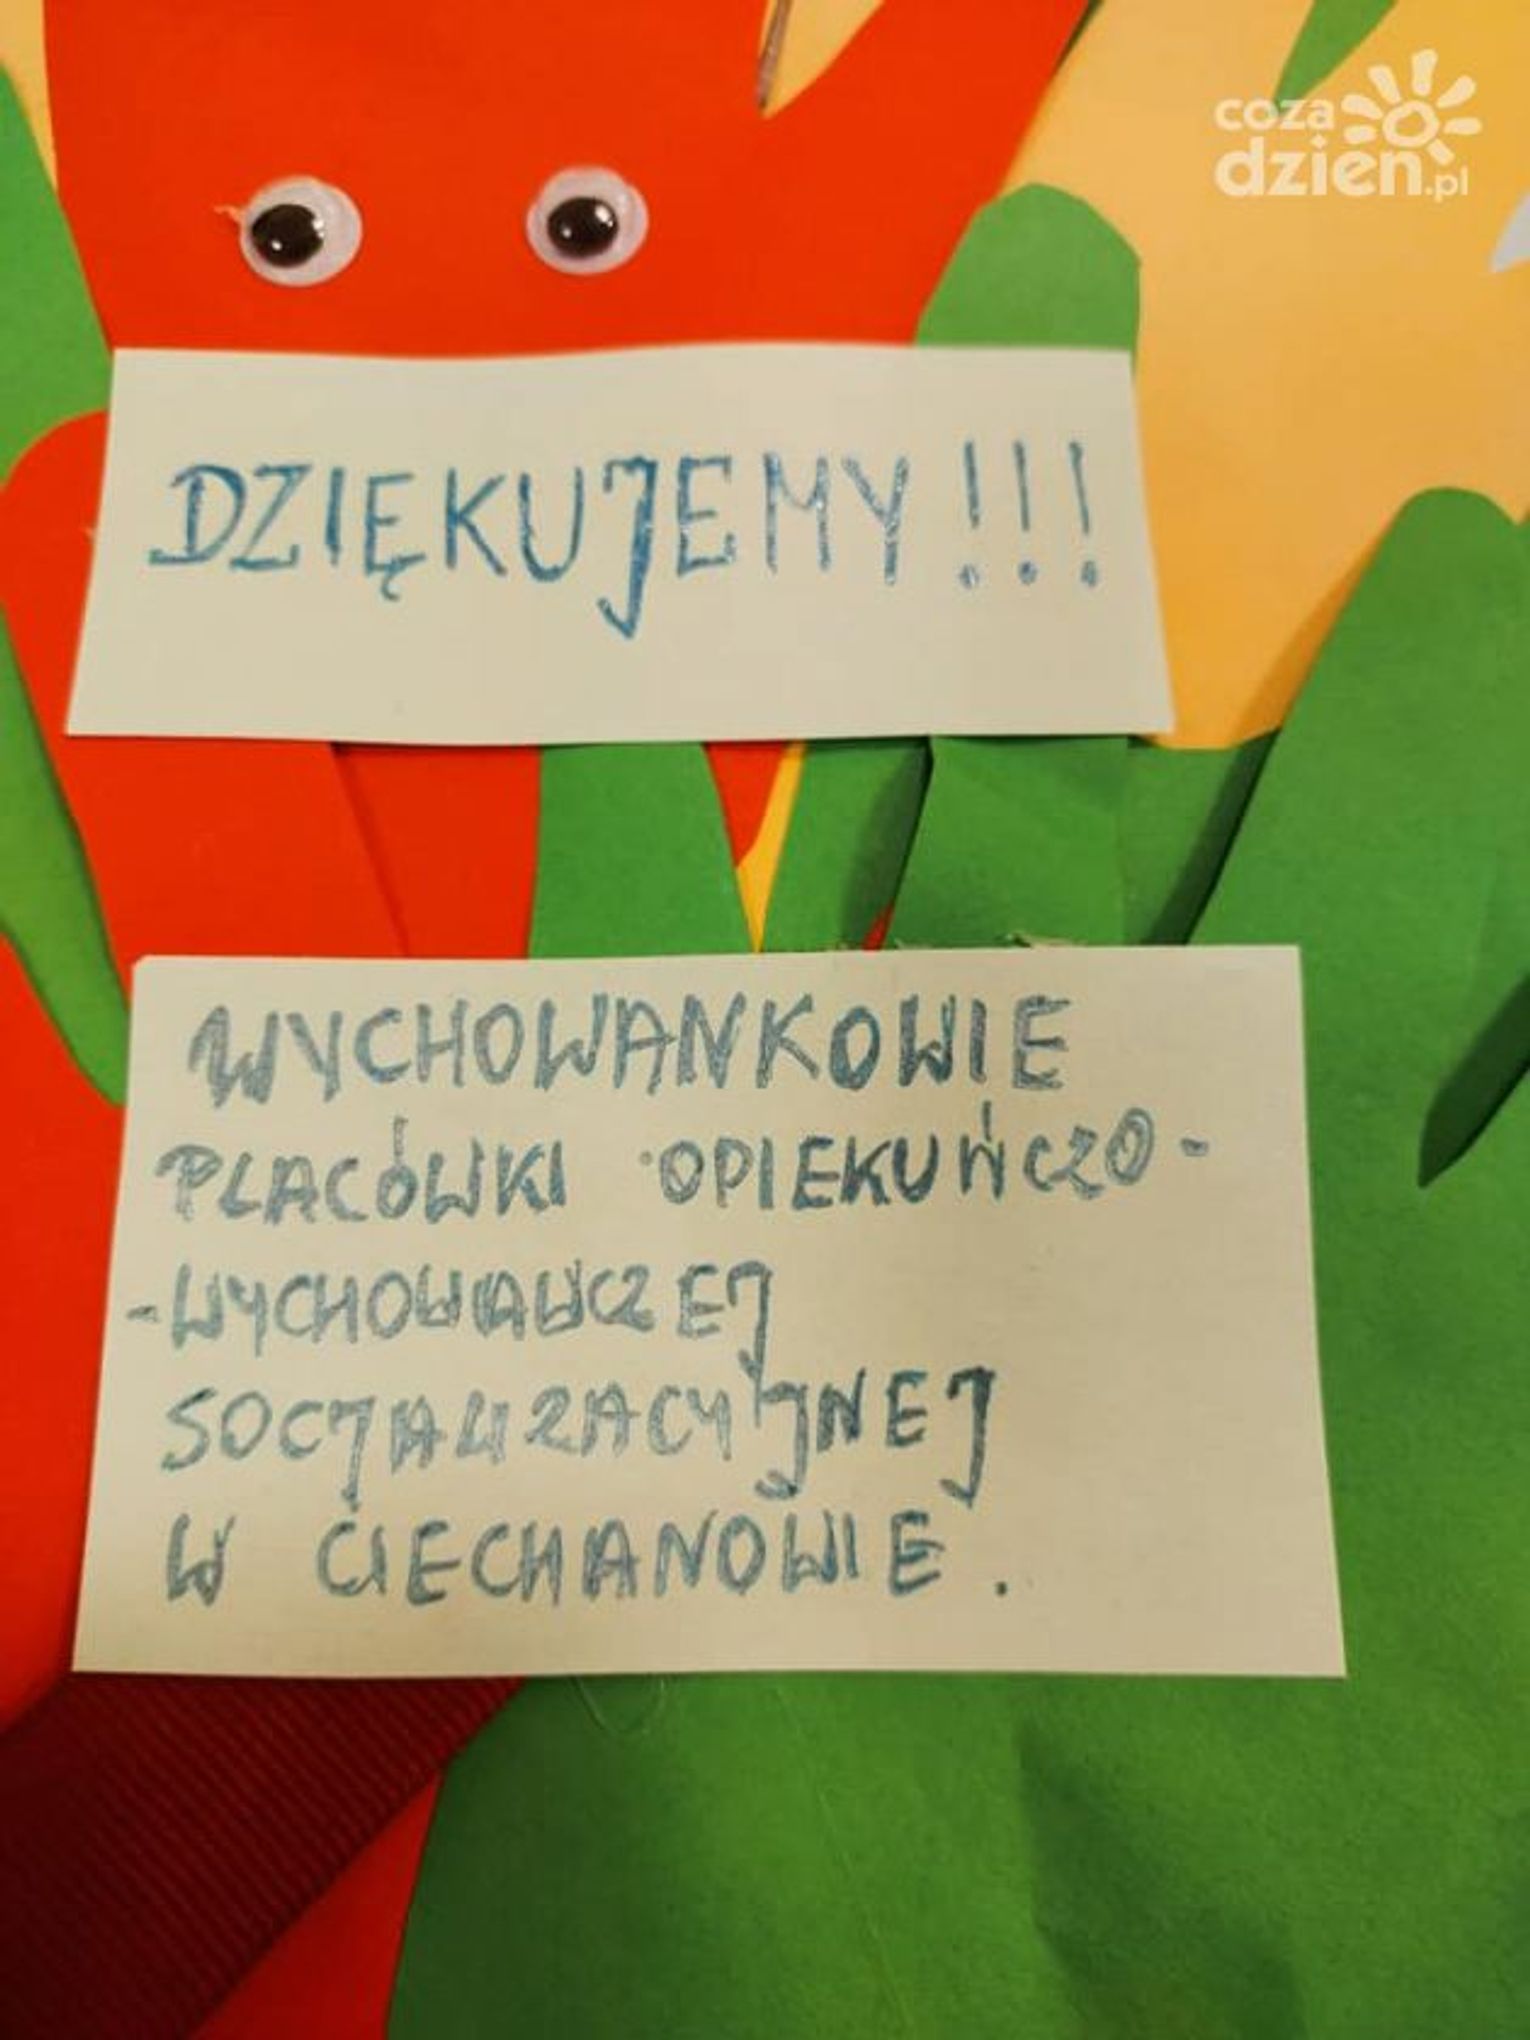 coza
dzien.pl
DZIĘKUJEMY!!!
WYCHOWANKOWIE
PLACÓWKI OPIEKUŃCZO-
-WYCHOWAWCZEJ
SOCJALIZACYJNEJ
W CIECHANOWIE.